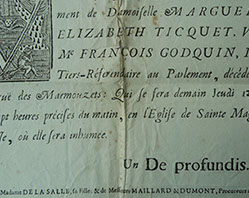 ment de Damoiselle MARGUE
ELIZABETH TICQUET, V
Me FRANÇOIS GODQUIN,
Tiers-Référendaire au Parlement, décédé
ruë des Marmouzets: Qui se fera demain Jeudi 12
pt heures précises du matin, en l'Eglise de Sainte Ma
se, où elle sera inhumée.
Un De profundis.
Madame DE LA SALLE, sa Fille, & de Messieurs MAILLARD & DUMONT, Procureurs